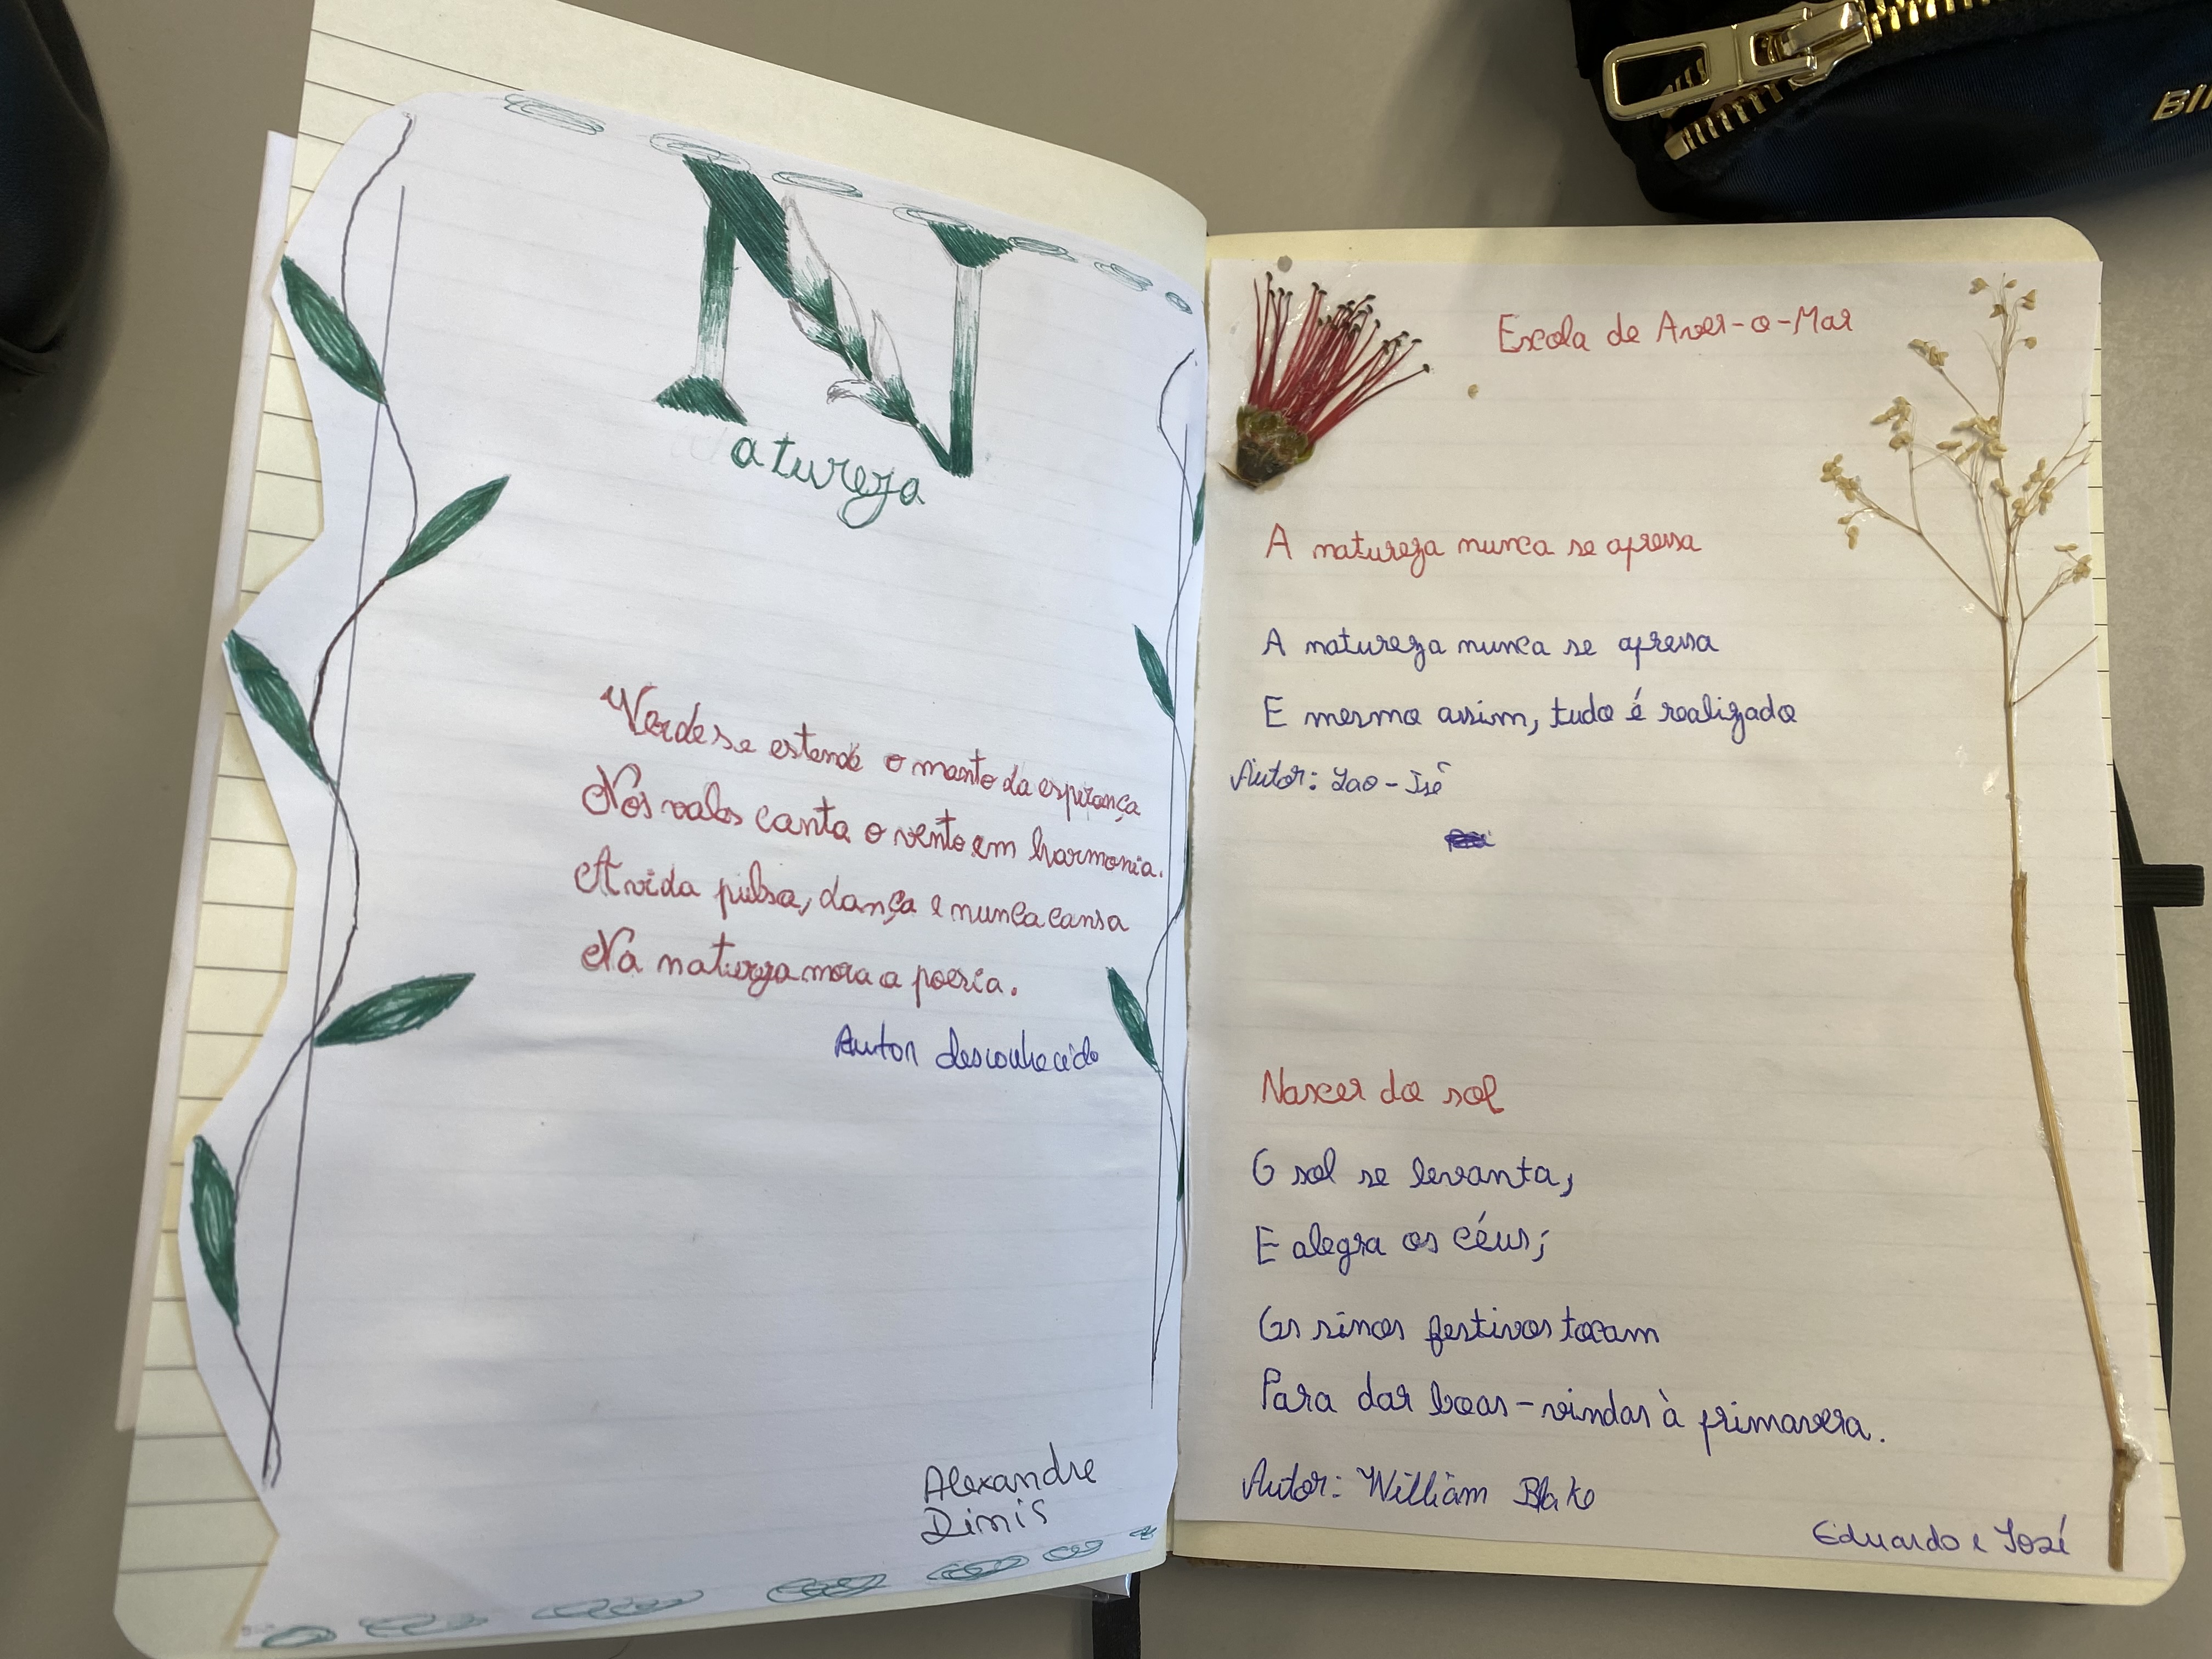 Natureza
Verde se estende o manto da esperança
Nos vales canta o vento em harmonia.
A vida pulsa, dança e nunca cansa
Na natureza mora a poesia.
Autor desconhecido
Alexandre
Dinis
Escola de Aver-o-Mar
A natureza nunca se apressa
A natureza nunca se apressa
E mesmo assim, tudo é realizado
Autor: Lao-Tsé
Nascer do sol
O sol se levanta,
E alegra os céus;
Os sinos festivos tocam
Para dar boas-vindas à primavera.
Autor: William Blake
Eduardo e José